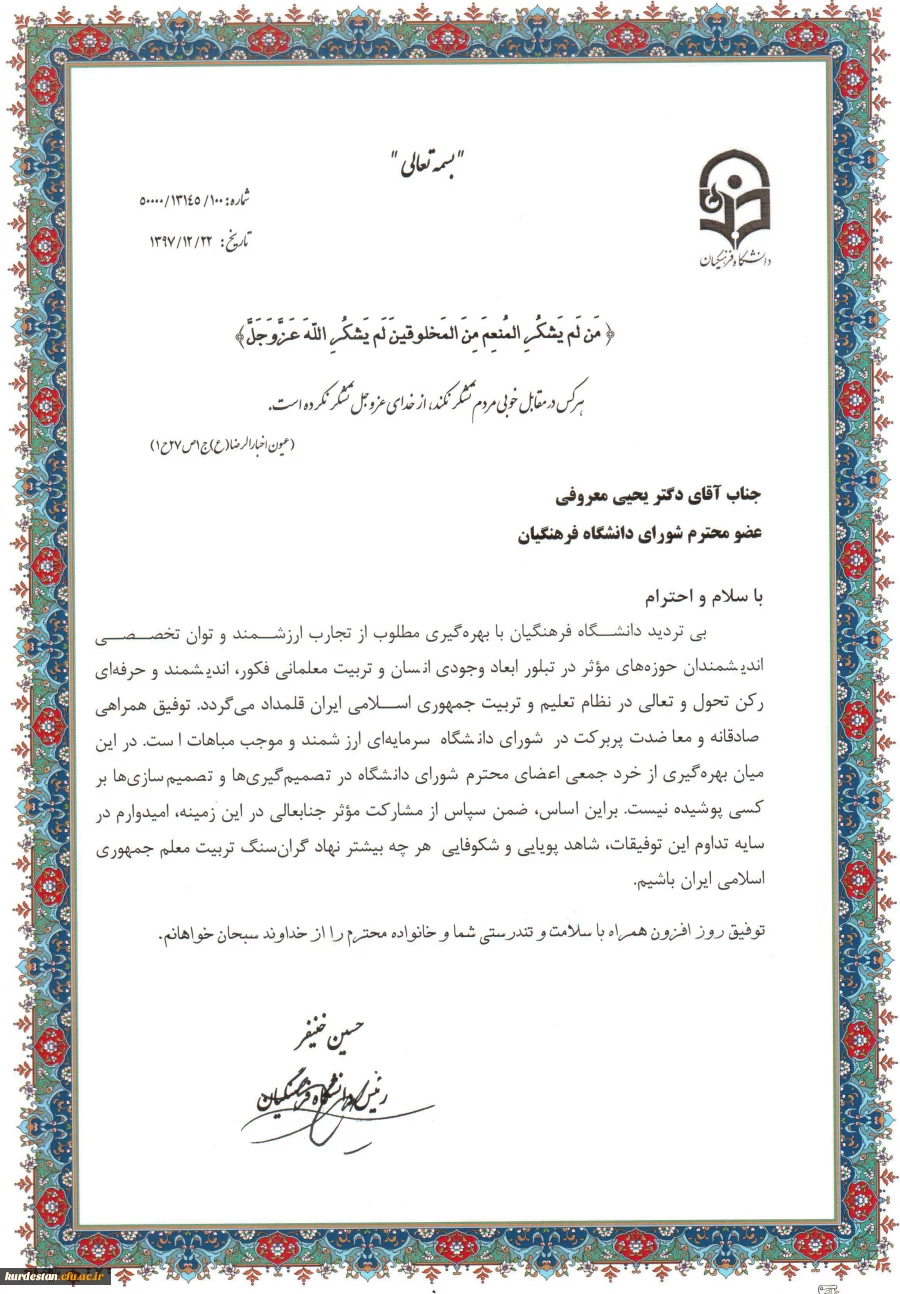 "بسمه تعالی"
شماره: ۵۰۰۰۰/۱۳۱۴۵/۱۰۰
تاریخ: ۱۳۹۷/۱۲/۲۲
دانشگاه فرهنگیان
﴿ مَن لَم یَشکُرِ المُنعِمَ مِنَ المَخلوقینَ لَم یَشکُرِ اللهَ عَزَّوَجَلَّ﴾
هرکس در مقابل خوبی مردم تشکر نکند، از خدای عزوجل تشکر نکرده است.
(عیون اخبارالرضا(ع)ج۱ص۲۷ح۱)
جناب آقای دکتر یحیی معروفی
عضو محترم شورای دانشگاه فرهنگیان
با سلام و احترام
بی تردید دانشگاه فرهنگیان با بهره‌گیری مطلوب از تجارب ارزشمند و توان تخصصی
اندیشمندان حوزه‌های مؤثر در تبلور ابعاد وجودی انسان و تربیت معلمانی فکور، اندیشمند و حرفه‌ای
رکن تحول و تعالی در نظام تعلیم و تربیت جمهوری اسلامی ایران قلمداد می‌گردد. توفیق همراهی
صادقانه و معاضدت پربرکت در شورای دانشگاه سرمایه‌ای ارزشمند و موجب مباهات است. در این
میان بهره‌گیری از خرد جمعی اعضای محترم شورای دانشگاه در تصمیم‌گیری‌ها و تصمیم سازی‌ها بر
کسی پوشیده نیست. براین اساس، ضمن سپاس از مشارکت مؤثر جنابعالی در این زمینه، امیدوارم در
سایه تداوم این توفیقات، شاهد پویایی و شکوفایی هر چه بیشتر نهاد گران‌سنگ تربیت معلم جمهوری
اسلامی ایران باشیم.
توفیق روز افزون همراه با سلامت و تندرستی شما و خانواده محترم را از خداوند سبحان خواهانم.
حسین خنیفر
رئیس دانشگاه فرهنگیان
kurdestan.cfu.ac.ir